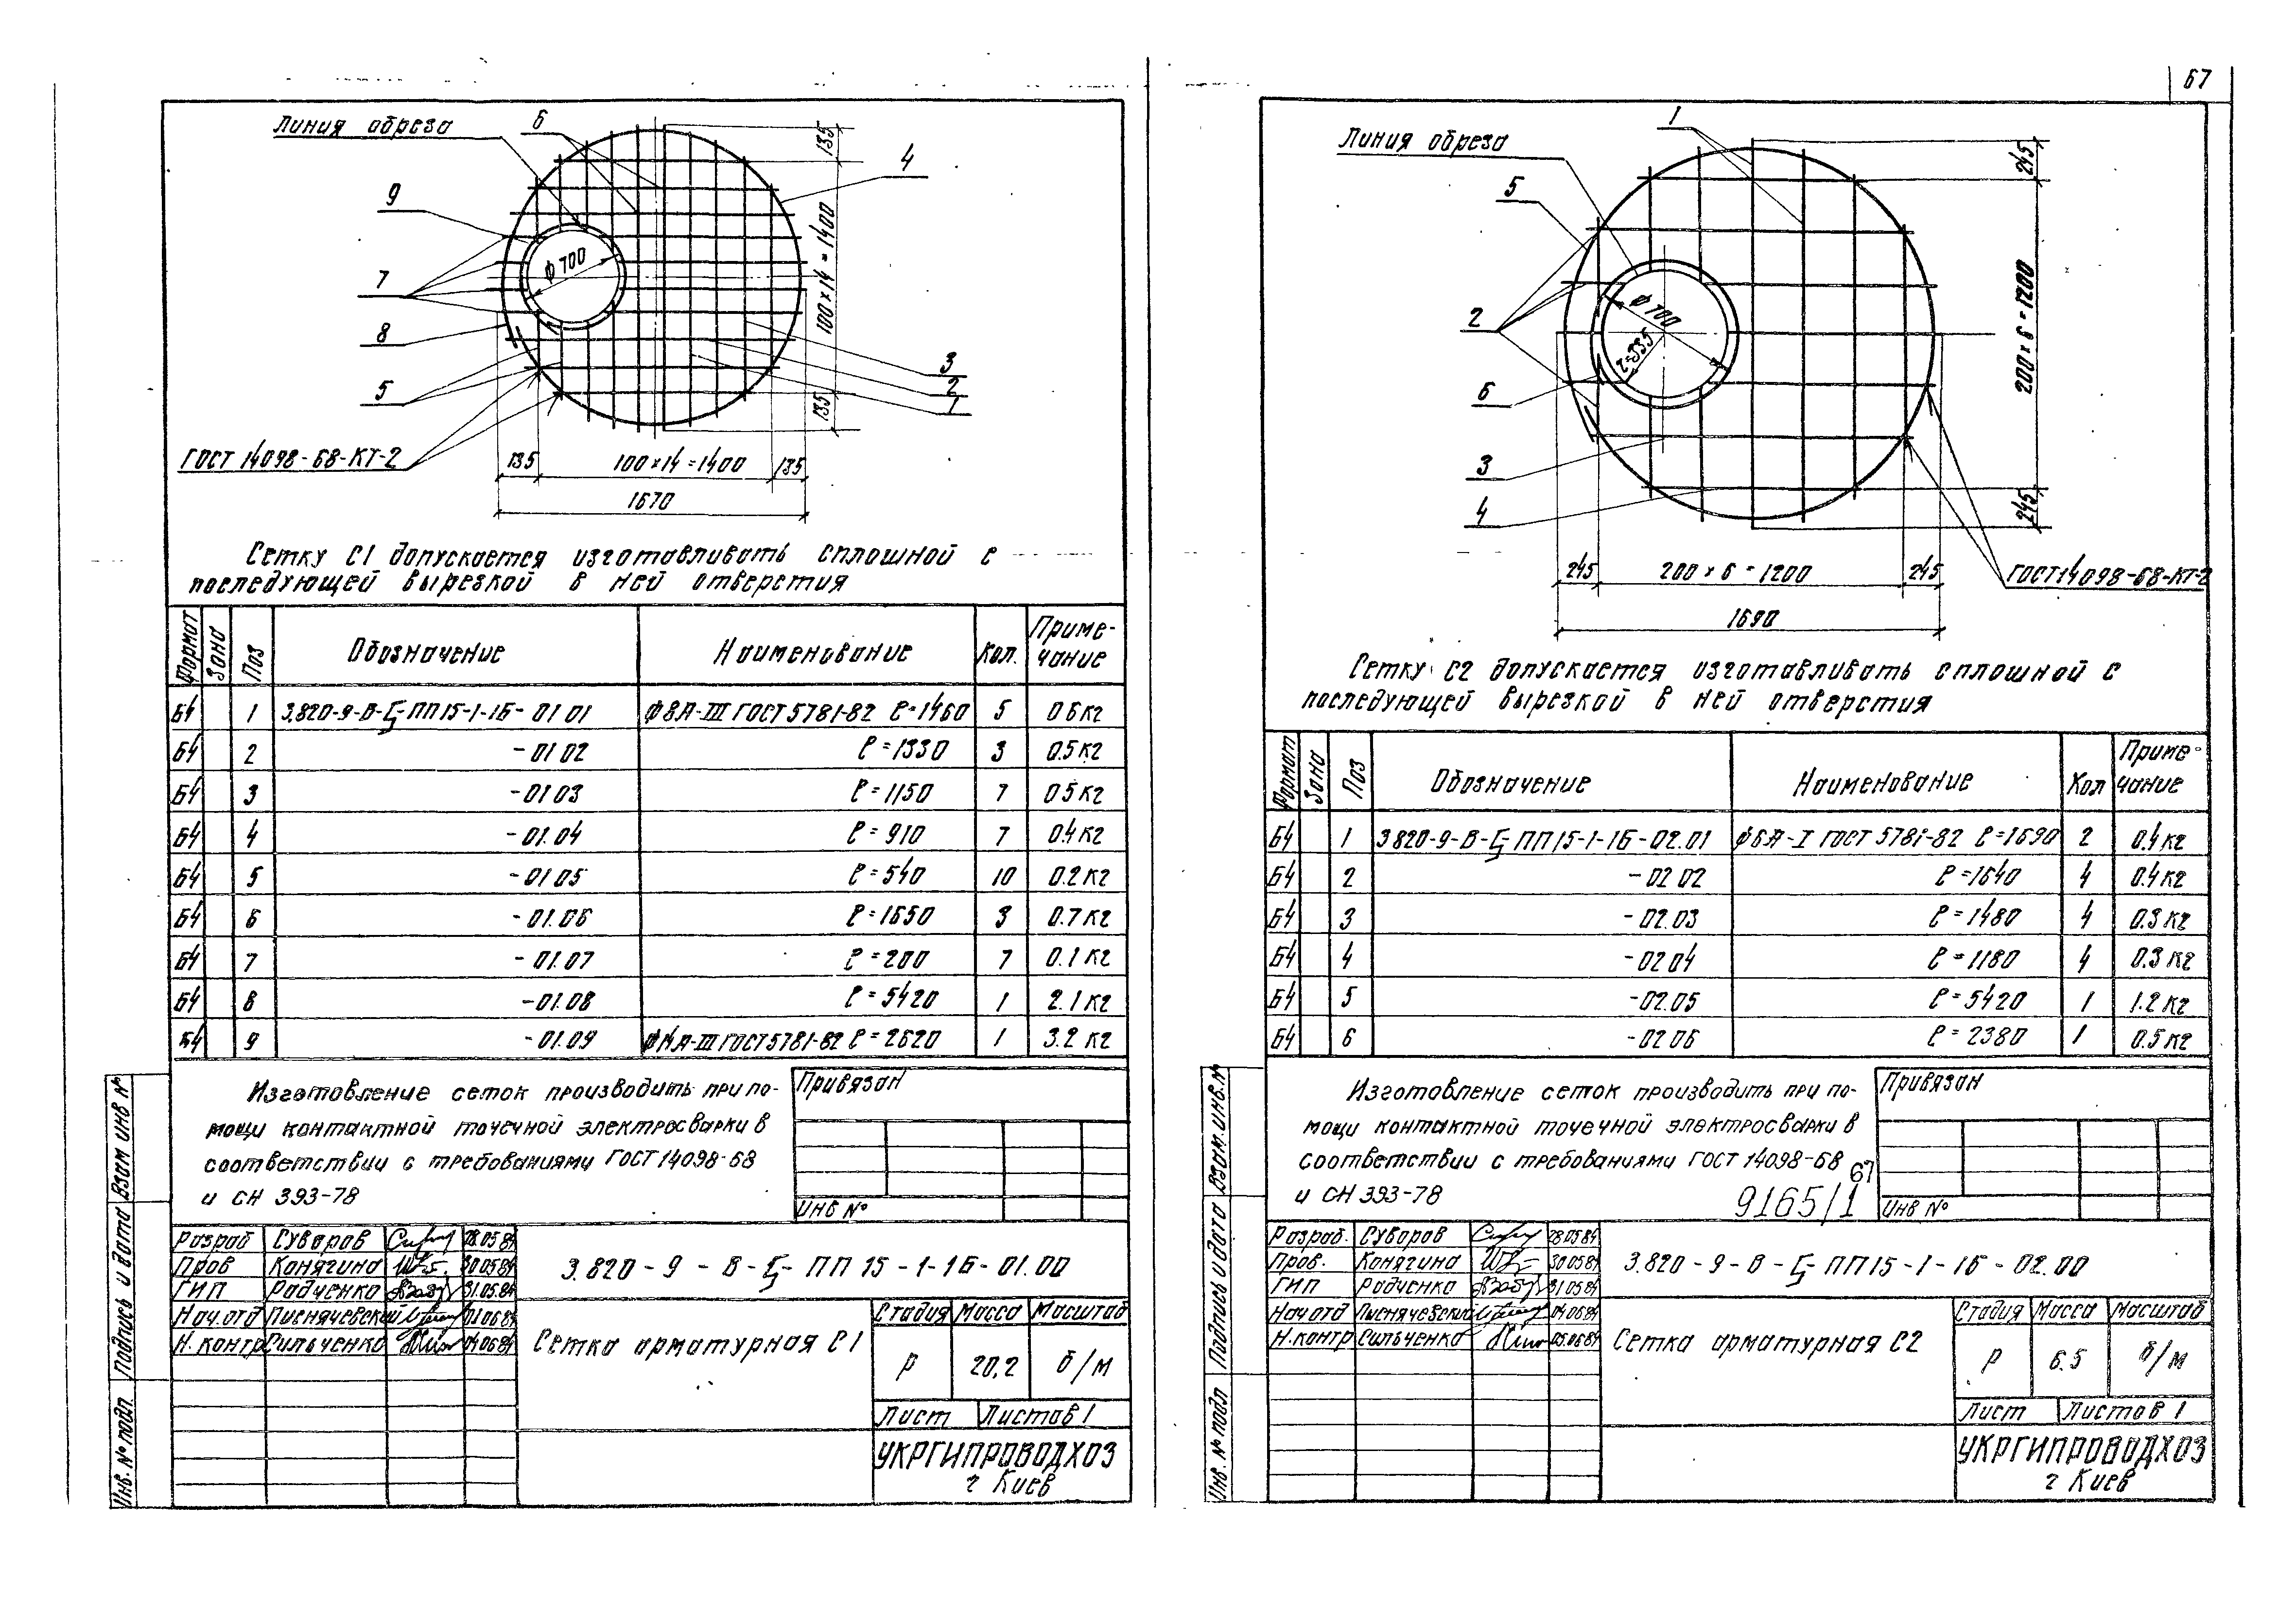 67
Линия обреза
6
4
9
7
8
5
3
2
1
ф 700
135
100×14=1400
135
ГОСТ 14098-68-КТ-2
135
100×14=1400
135
1670
Сетку С1 допускается изготавливать сплошной с
последующей вырезкой в ней отверстия
Формат Зона Поз Обозначение Наименование Кол. Приме-
чание
Б4 1 3.820-9-В-Ц-ПП15-1-1Б-01 01 ф8А-III ГОСТ 5781-82 ℓ=1460 5 0 6кг
Б4 2 -01 02 ℓ=1330 3 0.5кг
Б4 3 -01 03 ℓ=1150 7 0 5 кг
Б4 4 -01.04 ℓ=910 7 0.4кг
Б4 5 -01 05 ℓ=540 10 0.2 кг
Б4 6 -01.06 ℓ=1650 3 0.7 кг
Б4 7 -01.07 ℓ=200 7 0.1 кг
Б4 8 -01.08 ℓ=5420 1 2.1 кг
Б4 9 -01.09 ф14А-III ГОСТ 5781-82 ℓ=2620 1 3.2 кг
Изготовление сеток производить при по-
мощи контактной точечной электросварки в
соответствии с требованиями ГОСТ 14098-68
и СН 393-78
Привязан
Инв №
Взам инв №
Подпись и дата
Инв. № подл.
Разраб Суваров 28.05.84
Пров Конягина 30.05.84
ГИП Радченко 31.05.84
Нач.отд Писнячевский 01.06.84
Н. контр Сильченко 04.06.84
3.820-9-В-Ц-ПП 15-1-1Б-01.00
Сетка арматурная С1
Стадия Масса Масштаб
Р 20,2 б/м
Лист Листов 1
УКРГИПРОВОДХОЗ
г Киев
Линия обреза
1
5
2
6
3
4
ф 700
r=335
245
200×6=1200
245
245
200×6=1200
245
1690
ГОСТ 14098-68-КТ-2
Сетку С2 допускается изготавливать сплошной с
последующей вырезкой в ней отверстия
Формат Зона Поз Обозначение Наименование Кол Приме-
чание
Б4 1 3.820-9-В-Ц-ПП15-1-1Б-02.01 ф6А-I ГОСТ 5781-82 ℓ=1690 2 0.4 кг
Б4 2 -02 02 ℓ=1640 4 0.4 кг
Б4 3 -02.03 ℓ=1480 4 0.3 кг
Б4 4 -02 04 ℓ=1180 4 0.3 кг
Б4 5 -02.05 ℓ=5420 1 1.2 кг
Б4 6 -02 06 ℓ=2380 1 0.5 кг
Изготовление сеток производить при по-
мощи контактной точечной электросварки в
соответствии с требованиями ГОСТ 14098-68
и СН 393-78
67
9165/1
Привязан
Инв №
Взам. инв. №
Подпись и дата
Инв. № подл
Разраб. Суворов 28.05.84
Пров. Конягина 30.05.84
ГИП Радченко 31.05.84
Нач.отд Писнячевский 04.06.84
Н.контр Сильченко 05.06.84
3.820-9-В-Ц-ПП15-1-1Б-02.00
Сетка арматурная С2
Стадия Масса Масштаб
Р 6.5 б/м
Лист Листов 1
УКРГИПРОВОДХОЗ
г Киев